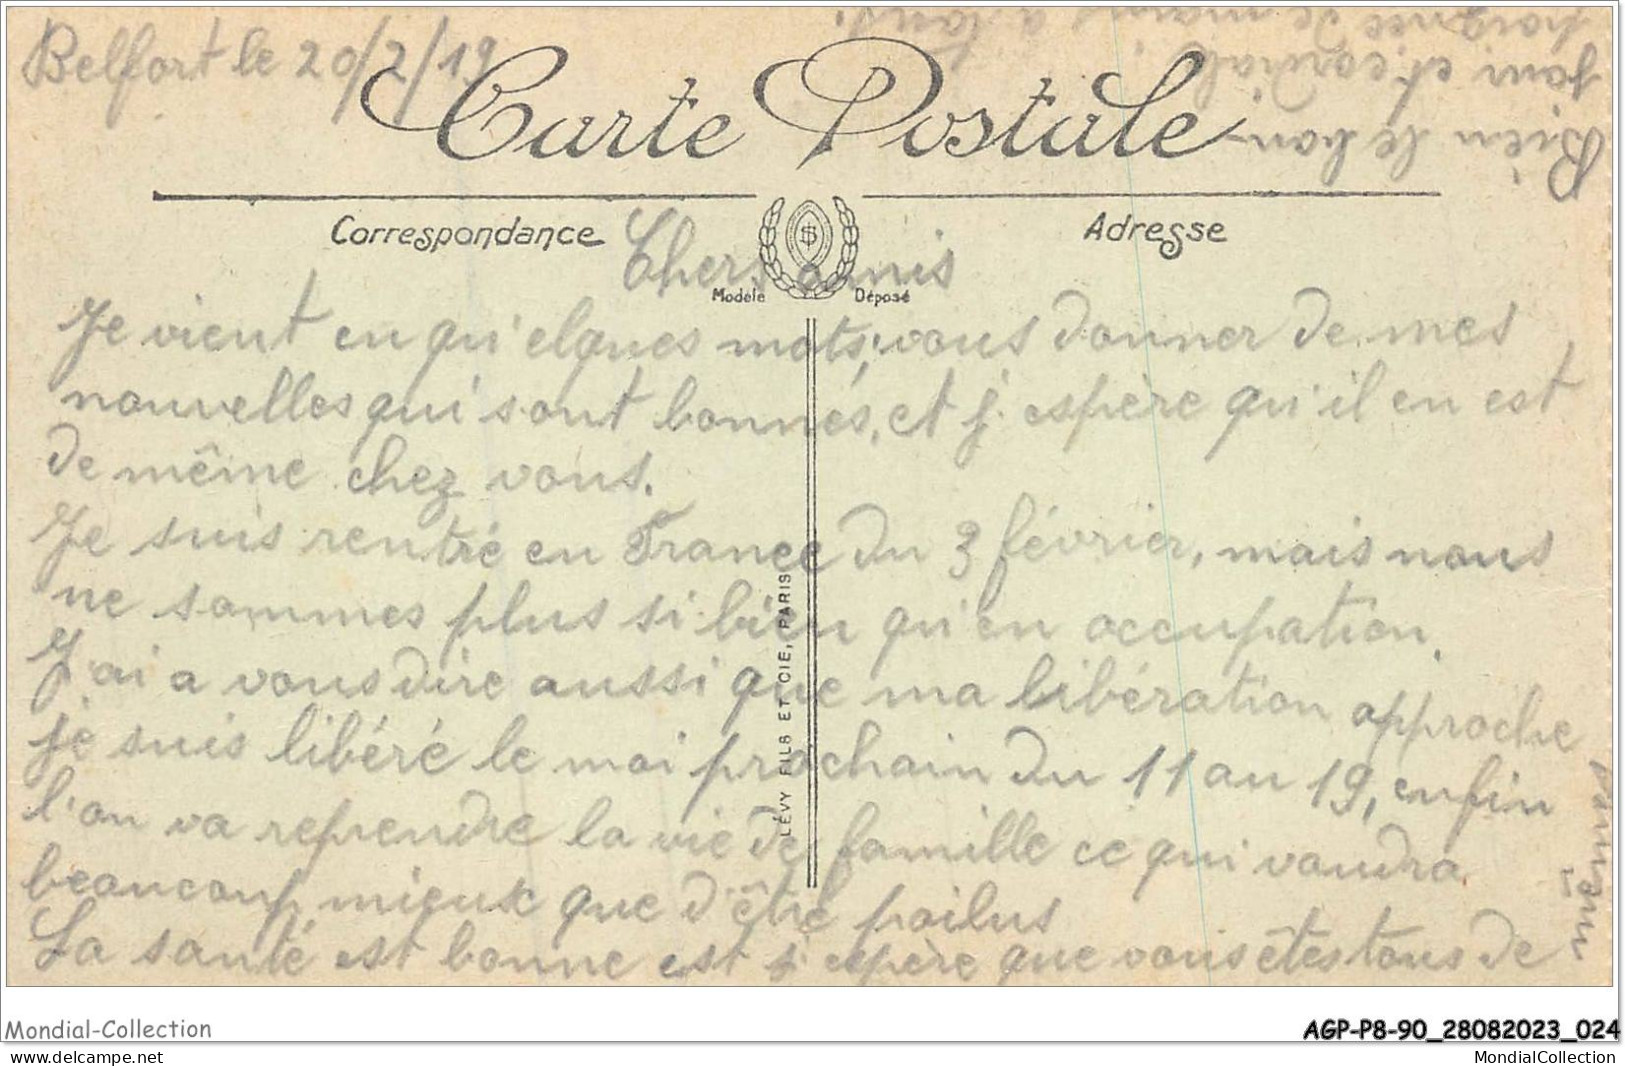 Belfort le 20/2/19
Carte Postale
Correspondance
Adresse
Chers amis
Modèle Déposé
Je vient en qu'elques mots, vous donner de mes
nouvelles qui sont bonnes, et j'espère qu'il en est
de même chez vous.
Je suis rentré en France du 3 février, mais nous
ne sommes plus si bien qu'en occupation.
J'ai a vous dire aussi que ma libération approche
je suis libéré le moi prochain du 11 au 19, enfin
l'on va reprendre la vie de famille ce qui vaudra
beaucoup mieux que d'être poilus
La santé est bonne est j'espère que vous êtes tous de
mêmes
Bien le bon-
jour et cordial
poignée de mains a tous.
LÉVY FILS ET CIE, PARIS
Mondial-Collection
AGP-P8-90_28082023_024
www.delcampe.net
MondialCollection